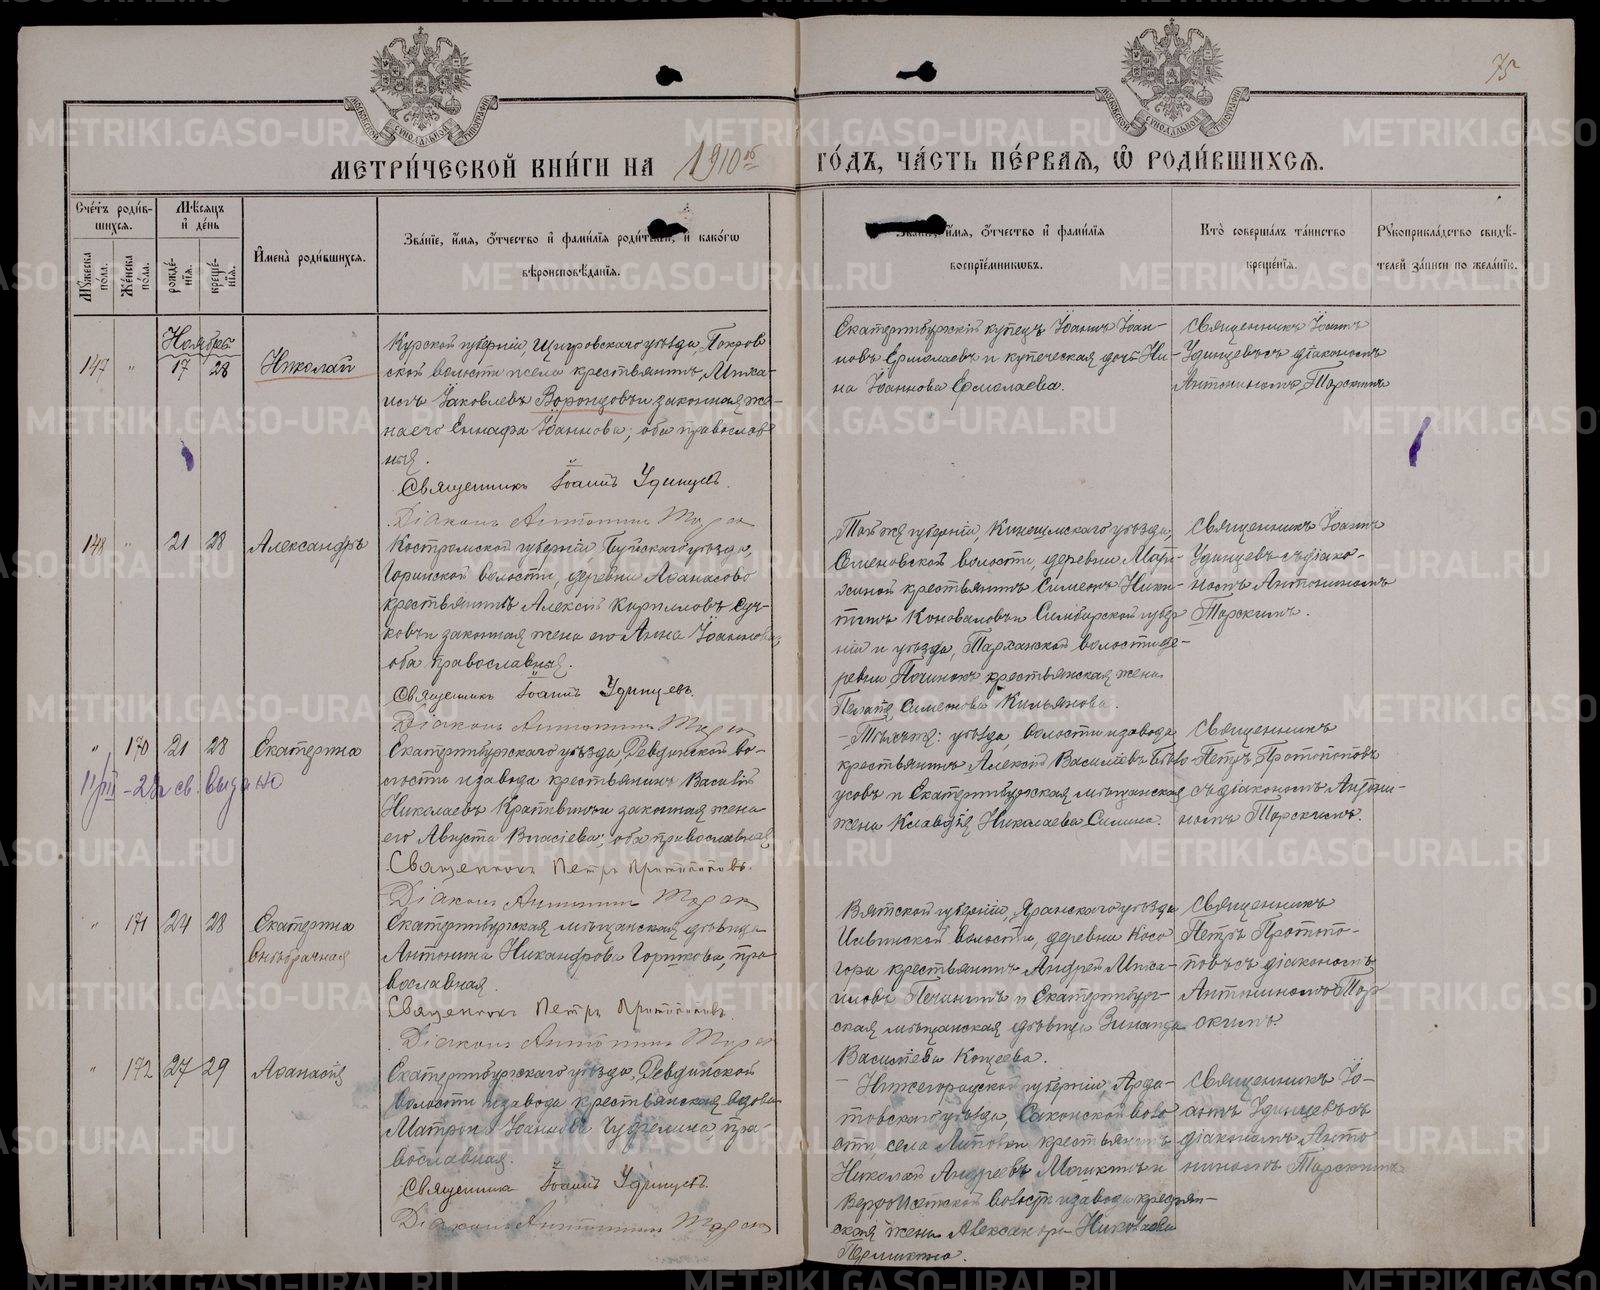 75
МЕТРИ́ЧЕСКОЙ КНИ́ГИ НА 1910 го́дъ, ча́сть пе́рваѧ, ѡ роди́вшихсѧ.
Сче́тъ роди́в-
шихсѧ.
Мꙋ́жеска по́ла.
Же́нска по́ла.
Мѣ́сѧцъ
и де́нь
рожде́-
нїѧ.
креще́-
нїѧ.
И҆мена̀ роди́вшихсѧ.
Зва́нїе, и҆́мѧ, ѻ҆́тчество и҆ фами́лїѧ роди́телей, и҆ како́гѡ
вѣроисповѣ́данїѧ.
и҆́мѧ, ѻ҆́тчество и҆ фами́лїѧ
воспрїе́мникѡвъ.
Кто̀ соверша́лъ та́инство
креще́нїѧ.
Рꙋкоприкла́дство свидѣ́-
телей за́писи по жела́нїю.
Ноябрь
147 " 17 28 Николай
Курской губерніи, Щигровскаго уѣзда, Покров
ской волости и села крестьянинъ Миха-
илъ Іаковлевъ Воронцовъ и законная же-
на его Іоаннова; оба православ
ныя.
Священникъ Іоаннъ Удинцевъ.
Діаконъ Антонинъ Торск
Екатеринбургскій купецъ Іоаннъ Іоан-
новъ Ермолаевъ и купеческая дочь Ни-
на Іоаннова Ермолаева.
Священникъ Іоаннъ
Удинцевъ съ діакономъ
Антониномъ Торскимъ
148 " 21 28 Александръ
Костромской губерніи Буйскаго уѣзда,
Горинской волости, деревни Аѳанасово
крестьянинъ Алексій Кирилловъ Суч-
ковъ и законная жена его Анна Іоаннова,
оба православныя.
Священникъ Іоаннъ Удинцевъ.
Діаконъ Антонинъ Торск
Той же губерніи, Кинешмскаго уѣзда,
Семеновской волости, деревни
крестьянинъ Симеонъ Ники-
тинъ Коноваловъ и Симбирской губер
ніи и уѣзда, Тарханской волости де-
ревни Починокъ крестьянская жена
Пелагія Симеонова Кильянова.
Священникъ Іоаннъ
Удинцевъ съ діако-
номъ Антониномъ
Торскимъ.
" 170 21 28 Екатерина
11/III – св. выдано
Екатеринбургскаго уѣзда, Ревдинской во-
лости и завода крестьянинъ Василій
Николаевъ и законная жена
его Августа Власіева; оба православныя
Священникъ Петръ Протопоповъ.
Діаконъ Антонинъ Торск
Тѣхъ же: уѣзда, волости и завода
крестьянинъ Алексій Василіевъ Бѣло
усовъ и Екатеринбургская мѣщанская
жена Клавдія Николаева Силина.
Священникъ
Петръ Протопоповъ
съ діакономъ Антони-
номъ Торскимъ.
" 171 24 28 Екатерина
Внѣбрачная
Екатеринбургская мѣщанская дѣвица
Антонина Никандрова Горшкова, пра
вославная.
Священникъ Петръ Протопоповъ.
Діаконъ Антонинъ Торск
Вятской губерніи, Яранскаго уѣзда
волости, деревни Косо
гора крестьянинъ Андрей Миха-
иловъ Печенинъ и Екатеринбург-
ская мѣщанская дѣвица Зинаида
Василіева Кощеева.
Священникъ
Петръ Протопо-
повъ съ діакономъ
Антониномъ Тор
скимъ.
" 172 27 29 Аѳанасія
Екатеринбургскаго уѣзда, Ревдинской
волости и завода крестьянская вдова
Матрона Іоаннова, пра-
вославная.
Священникъ Іоаннъ Удинцевъ.
Діаконъ Антонинъ Торск
Нижегородской губерніи, Арда-
товскаго уѣзда, Саконской воло
сти, села Липовки крестьянинъ
Николай Андреевъ и
Верхъ-Исетской волости и завода крестьян-
ская жена Александра Николаева
Священникъ Іо-
аннъ Удинцевъ съ
діакономъ Анто
ниномъ Торскимъ
METRIKI.GASO-URAL.RU